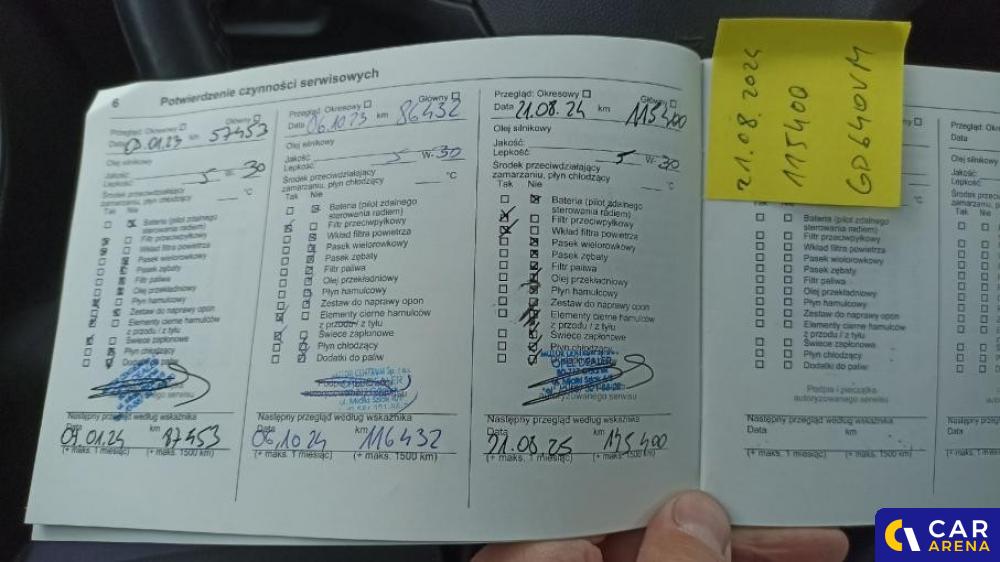 6 Potwierdzenie czynności serwisowych
Przegląd: Okresowy Główny
Data 01.23 km 57453
Olej silnikowy
Jakość:
Lepkość: 5 W- 30
Środek przeciwdziałający
zamarzaniu, płyn chłodzący °C
Tak Nie
Bateria (pilot zdalnego
sterowania radiem)
Filtr przeciwpyłkowy
Wkład filtra powietrza
Pasek wielorowkowy
Pasek zębaty
Filtr paliwa
Olej przekładniowy
Płyn hamulcowy
Zestaw do naprawy opon
Elementy cierne hamulców
z przodu / z tyłu
Świece zapłonowe
Płyn chłodzący
Dodatki do paliw
Następny przegląd według wskaźnika
Data km
01.24 87453
(+ maks. 1 miesiąc) (+ maks. 1500 km)
Przegląd: Okresowy Główny
Data 06.10 23 km 86432
Olej silnikowy
Jakość:
Lepkość: 5 W- 30
Środek przeciwdziałający
zamarzaniu, płyn chłodzący °C
Tak Nie
Bateria (pilot zdalnego
sterowania radiem)
Filtr przeciwpyłkowy
Wkład filtra powietrza
Pasek wielorowkowy
Pasek zębaty
Filtr paliwa
Olej przekładniowy
Płyn hamulcowy
Zestaw do naprawy opon
Elementy cierne hamulców
z przodu / z tyłu
Świece zapłonowe
Płyn chłodzący
Dodatki do paliw
MOTOR CENTRUM Sp. z o.o.
Następny przegląd według wskaźnika
Data km
06.10 24 116432
(+ maks. 1 miesiąc) (+ maks. 1500 km)
Przegląd: Okresowy Główny
Data 21.08.24 km 115400
Olej silnikowy
Jakość:
Lepkość: 5 W- 30
Środek przeciwdziałający
zamarzaniu, płyn chłodzący °C
Tak Nie
Bateria (pilot zdalnego
sterowania radiem)
Filtr przeciwpyłkowy
Wkład filtra powietrza
Pasek wielorowkowy
Pasek zębaty
Filtr paliwa
Olej przekładniowy
Płyn hamulcowy
Zestaw do naprawy opon
Elementy cierne hamulców
z przodu / z tyłu
Świece zapłonowe
Płyn chłodzący
OPEL DEALER
autoryzowanego serwisu
Następny przegląd według wskaźnika
Data km
21.08.25 145400
(+ maks. 1 miesiąc) (+ maks. 1500 km)
21.08.2024
115400
GD640VM
Bateria (pilot zdalnego
sterowania radiem)
Filtr przeciwpyłkowy
Wkład filtra powietrza
Pasek wielorowkowy
Pasek zębaty
Filtr paliwa
Olej przekładniowy
Płyn hamulcowy
Zestaw do naprawy opon
Elementy cierne hamulców
z przodu / z tyłu
Świece zapłonowe
Płyn chłodzący
Dodatki do paliw
Podpis i pieczątka
autoryzowanego serwisu
Następny przegląd według wskaźnika
Data km
(+ maks. 1 miesiąc) (+ maks. 1500 km)
Przegląd: Ok
Data
Olej silnikowy
Jakość:
Lepkość:
Środek przeciw
zamarzaniu, pł
Tak Nie
Następny
Data
(+ maks.
CAR
ARENA